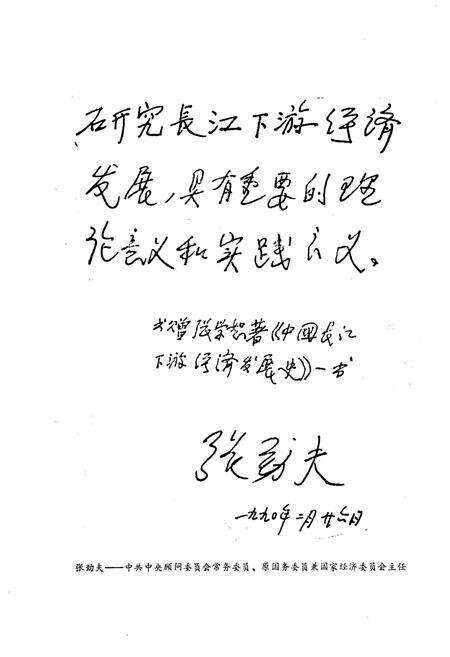 研究長江下游经濟
发展，具有重要的理
论意义和实践意义。
书赠张学恕著《中国长江
下游经济发展史》一书
张劲夫
一九九〇年二月廿六日
张劲夫——中共中央顾问委员会常务委员、原国务委员兼国家经济委员会主任